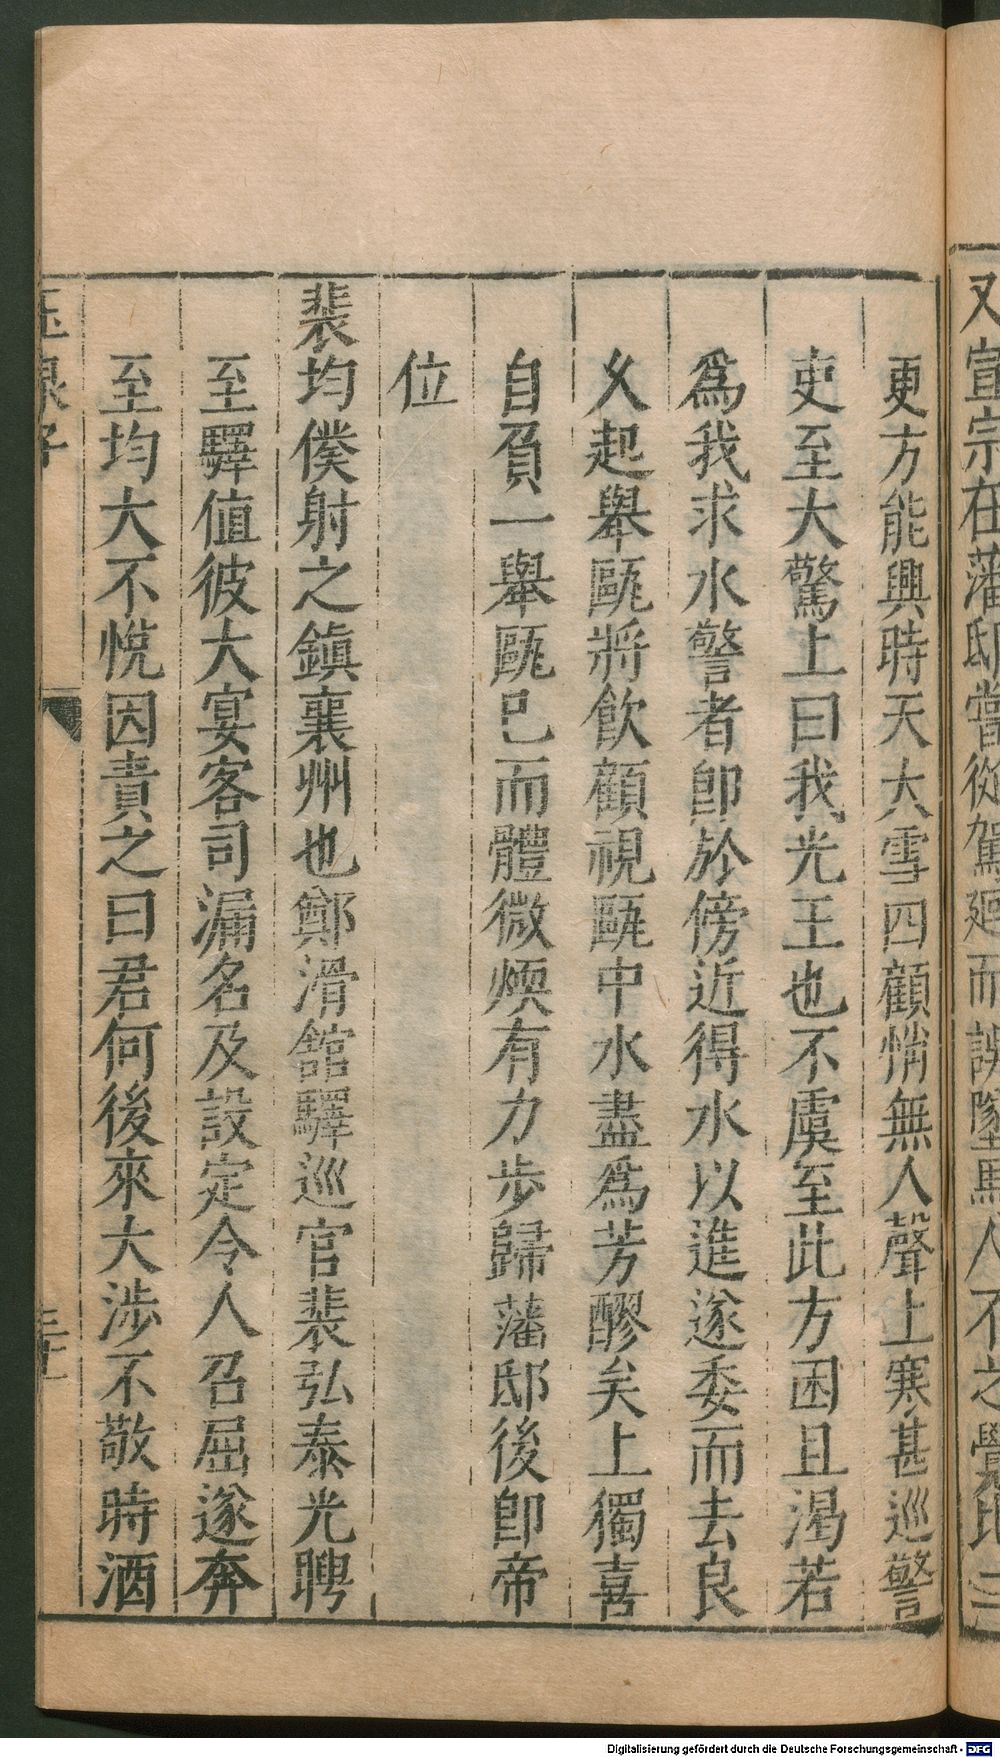 又宣宗在藩邸嘗從駕廻而誤墜馬人不之覺比二
更方能興時天大雪四顧悄無人聲上寒甚巡警
吏至大驚上曰我光王也不虞至此方困且渴若
爲我求水警者卽於傍近得水以進遂委而去良
乆起舉甌將飲顧視甌中水盡爲芳醪矣上獨喜
自負一舉甌已而體微煗有力步歸藩邸後卽帝
位
裴均僕射之鎮襄州也鄭滑舘驛巡官裴弘泰光聘
至驛值彼大宴客司漏名及設定令人召屈遂奔
至均大不悅因責之曰君何後來大涉不敬時酒
玉泉子
三十
Digitalisierung gefördert durch die Deutsche Forschungsgemeinschaft - DFG